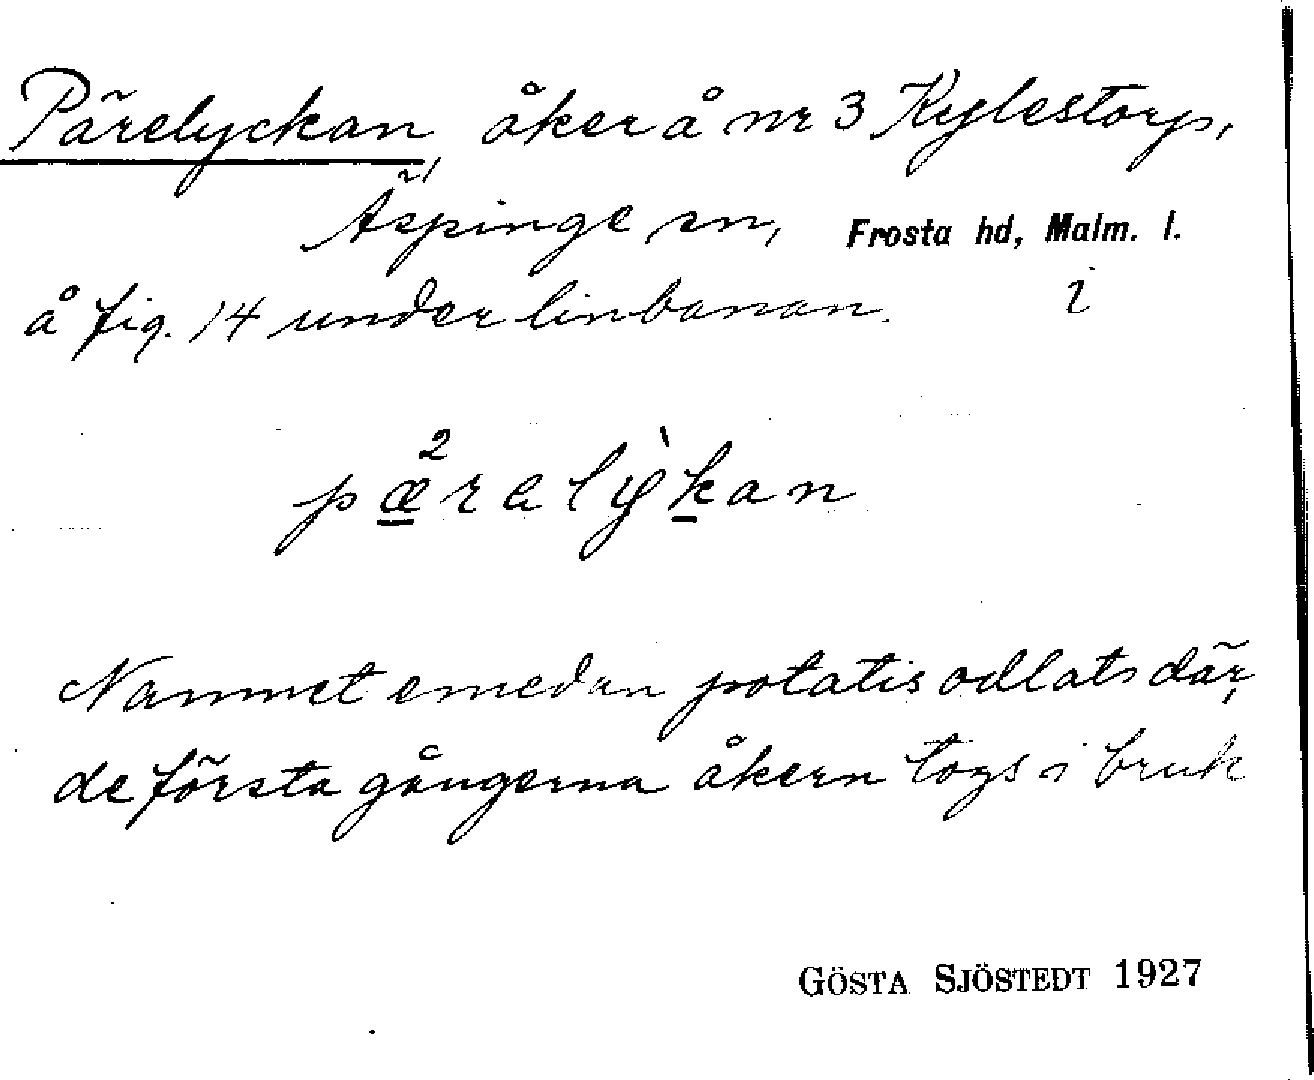 Pärelyckan, åker å nr 3 Kylestorp,
Äspinge sn, Frosta hd, Malm. l.
å fig. 14 under linbanan. i
pæ̱²ralỳḵan
Namnet emedan potatis odlats där,
de första gångerna åkern togs i bruk
GÖSTA SJÖSTEDT 1927